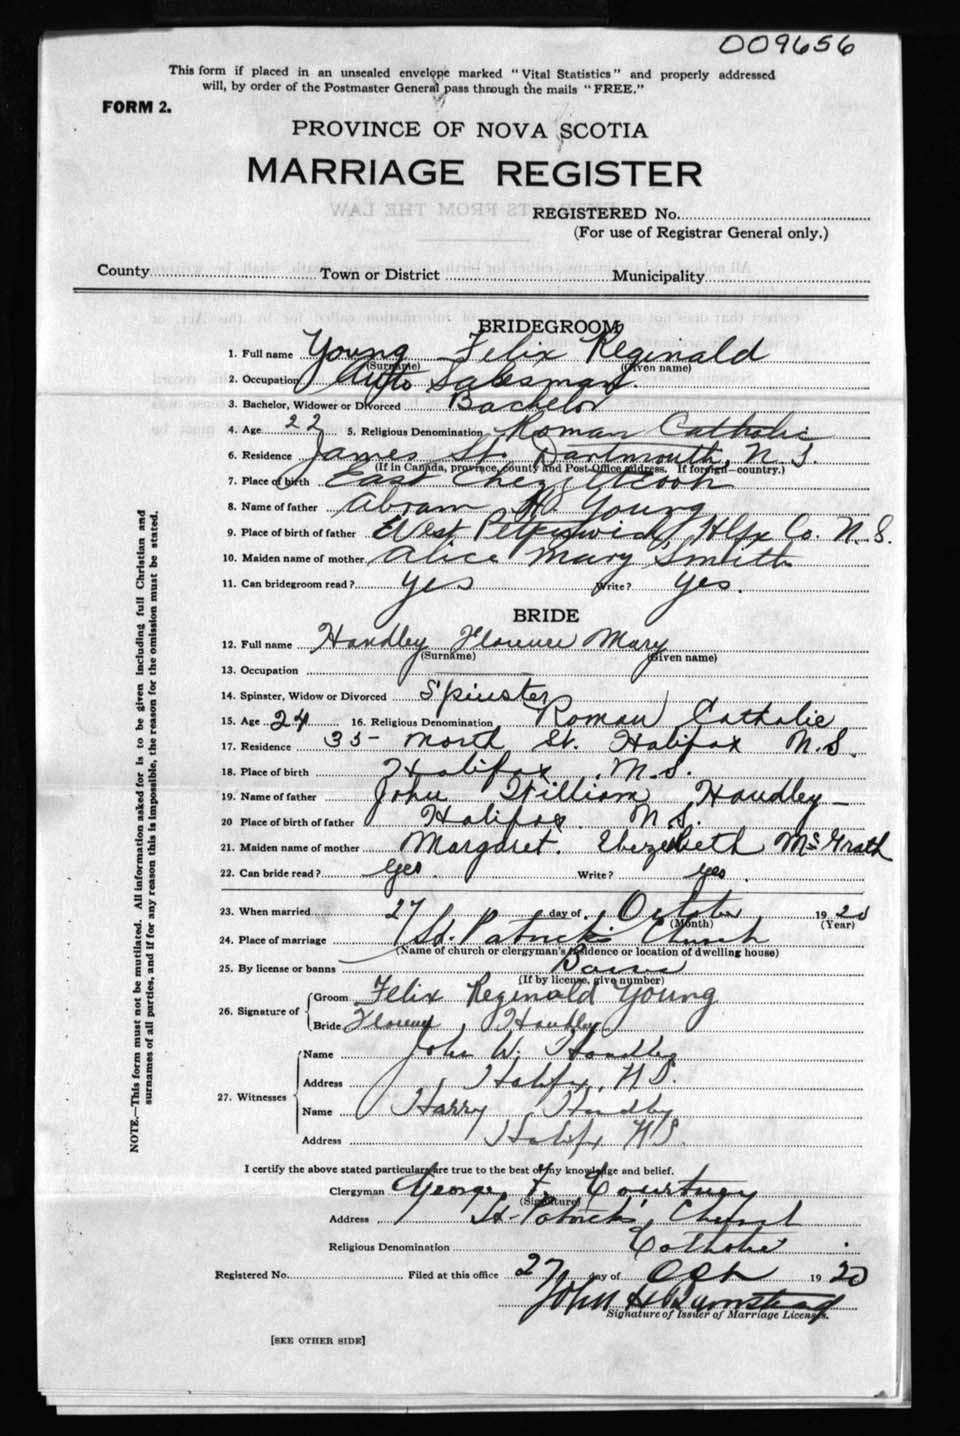 009656
This form if placed in an unsealed envelope marked "Vital Statistics" and properly addressed
will, by order of the Postmaster General pass through the mails "FREE."
FORM 2.
PROVINCE OF NOVA SCOTIA
MARRIAGE REGISTER
REGISTERED No.
(For use of Registrar General only.)
County Town or District Municipality
BRIDEGROOM
1. Full name Young Felix Reginald
(Surname) (Given name)
2. Occupation Auto Salesman.
3. Bachelor, Widower or Divorced Bachelor
4. Age 22 5. Religious Denomination Roman Catholic
6. Residence James St. Dartmouth, N.S.
(If in Canada, province, county and Post-Office address. If foreign—country.)
7. Place of birth East Chezzetcook
8. Name of father Abram H. Young
9. Place of birth of father West Petpeswick, Hlfx Co. N.S.
10. Maiden name of mother Alice Mary Smith
11. Can bridegroom read? yes Write? yes.
BRIDE
12. Full name Handley Florence Mary
(Surname) (Given name)
13. Occupation
14. Spinster, Widow or Divorced Spinster
15. Age 24 16. Religious Denomination Roman Catholic
17. Residence 35 - North St. Halifax N.S.
18. Place of birth Halifax. N.S.
19. Name of father John William Handley -
20 Place of birth of father Halifax. N.S.
21. Maiden name of mother Margaret. McGrath
22. Can bride read? yes. Write? yes.
23. When married 27 day of October 1920
(Month) (Year)
24. Place of marriage St. Patrick's Church
(Name of church or clergyman's residence or location of dwelling house)
25. By license or banns Banns
(If by license, give number)
26. Signature of Groom Felix Reginald Young
Bride Florence Handley
27. Witnesses Name John W. Handley
Address Halifx, N.S.
Name Harry Handley
Address Halifx N.S.
I certify the above stated particulars are true to the best of my knowledge and belief.
Clergyman George F. Courtney
(Signature)
Address St. Patrick's Church
Religious Denomination Catholic.
Registered No. Filed at this office 27 day of Oct 1920
John H Barnstead
Signature of Issuer of Marriage Licenses.
[SEE OTHER SIDE]
NOTE.—This form must not be mutilated. All information asked for is to be given including full Christian and
surnames of all parties, and if for any reason this is impossible, the reason for the omission must be stated.